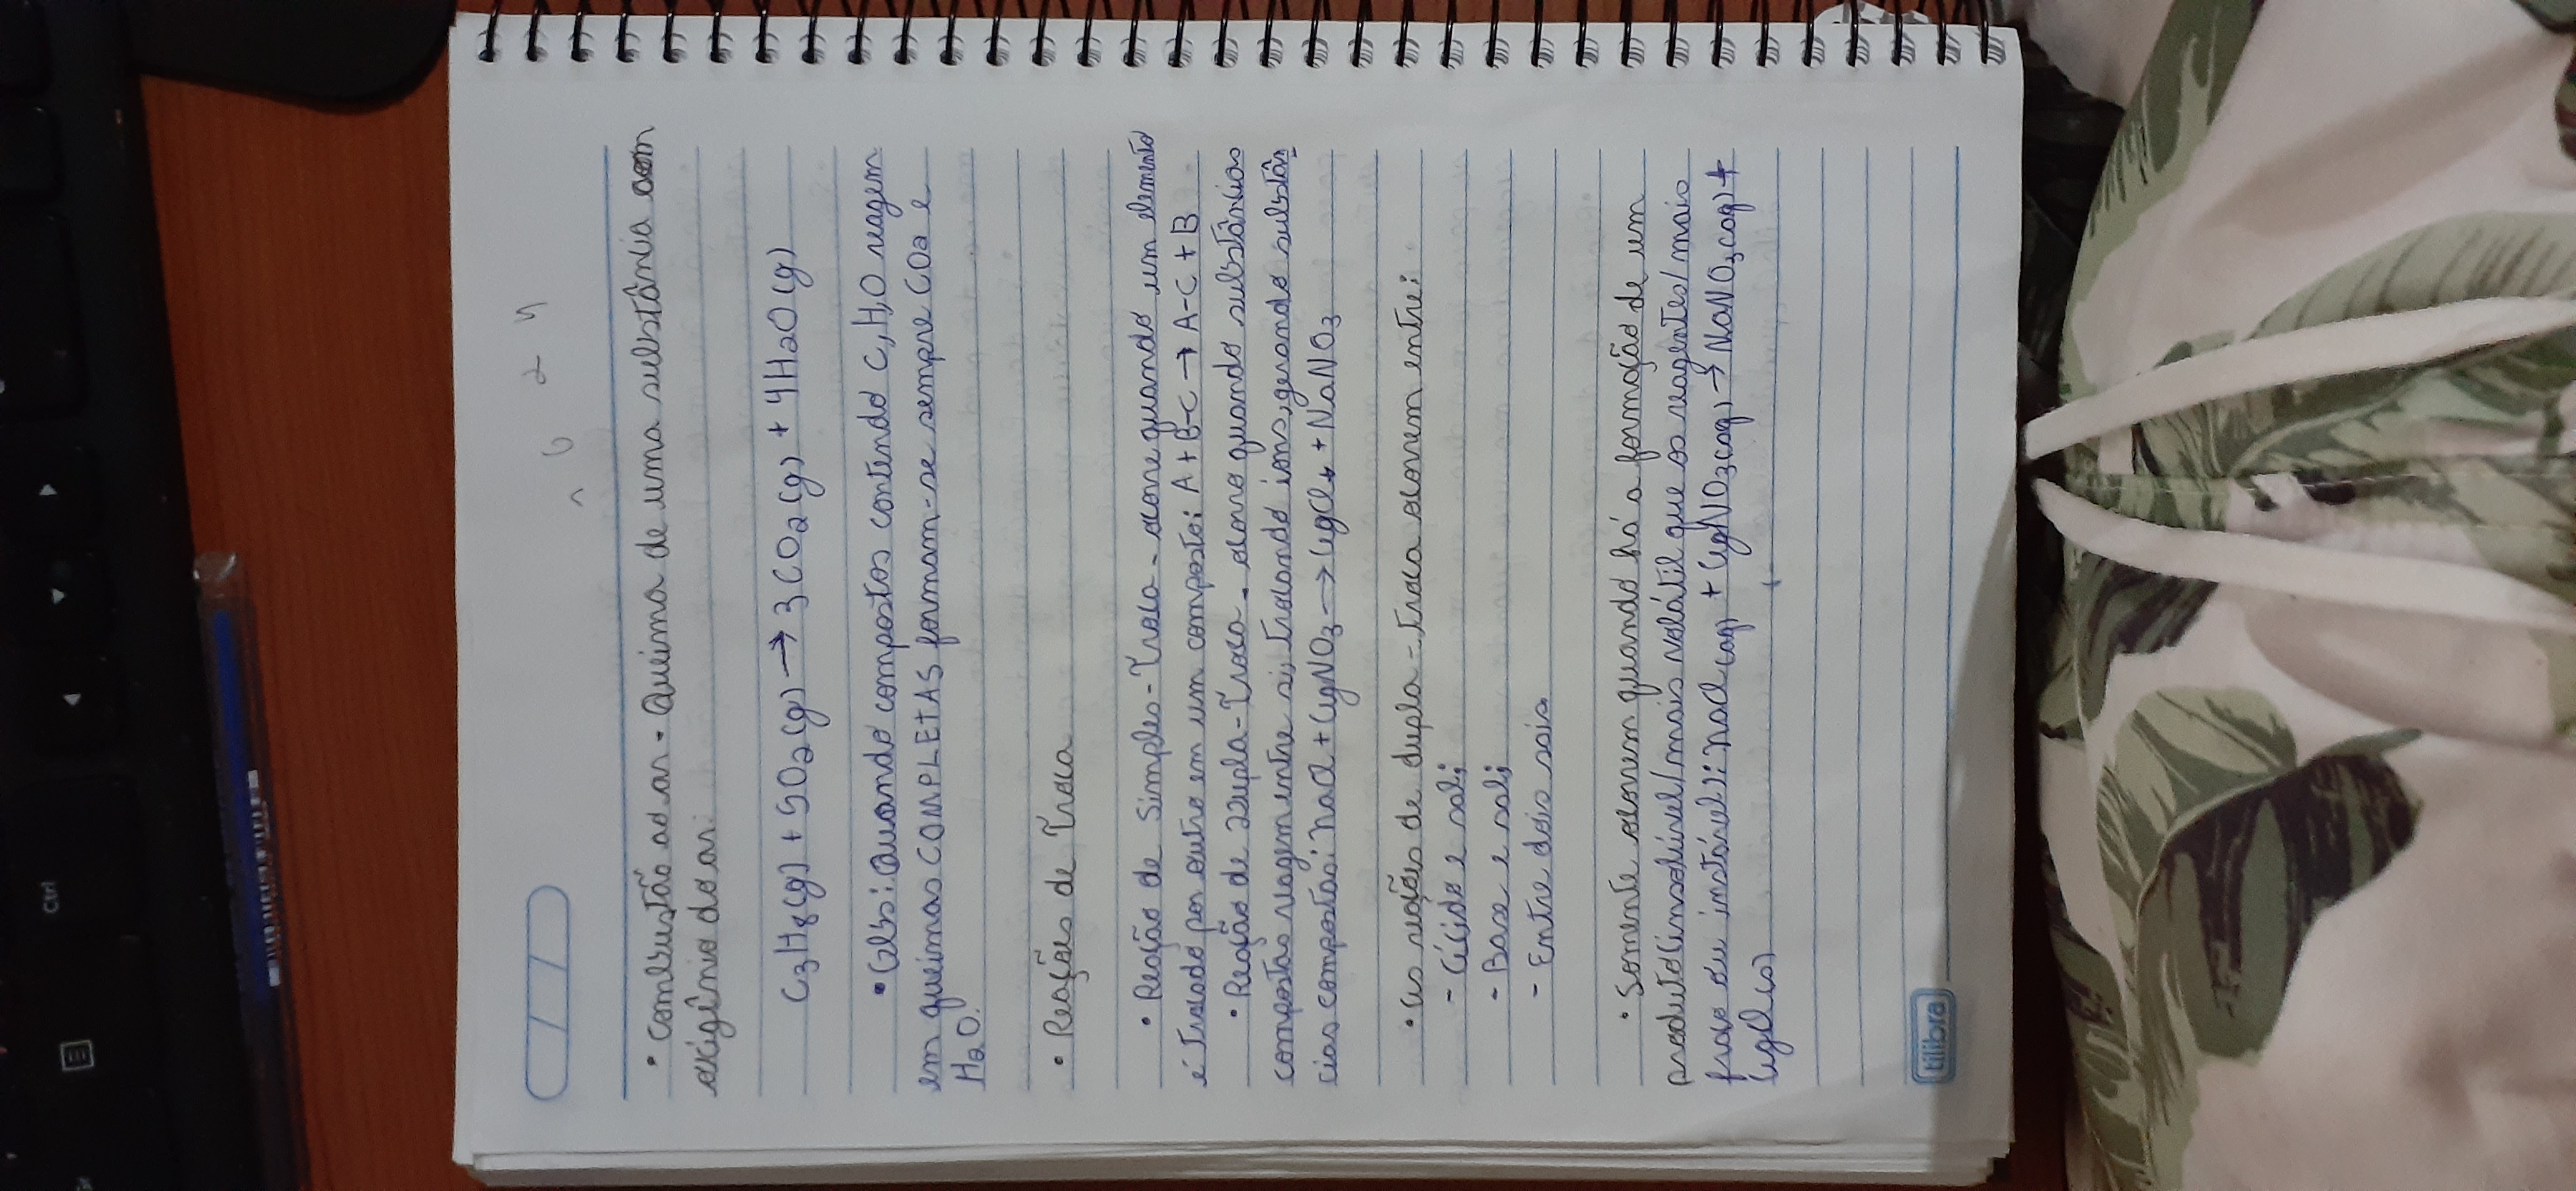 • Combustão ao ar - Queima de uma substância com
oxigênio do ar:
C3H8(g) + 5O2(g) → 3CO2(g) + 4H2O(g)
• Obs: Quando compostos contendo C, H, O reagem
em queimas COMPLETAS formam-se sempre CO2 e
H2O.
• Reações de Troca
• Reação de Simples-Troca - ocorre quando um elemento
é trocado por outro em um composto: A + B-C → A-C + B
• Reação de Dupla-Troca - ocorre quando substâncias
compostas reagem entre si, trocando íons, gerando substân
cias compostas: NaCl + AgNO3 → AgCl + NaNO3
• As reações de dupla-troca ocorrem entre:
- Ácido e sal;
- Base e sal;
- Entre dois sais.
• Somente ocorrem quando há a formação de um
produto (insolúvel/mais volátil que os reagentes/mais
fraco ou instável): NaCl(aq) + AgNO3(aq) → NaNO3(aq) +
AgCl(s)
tilibra
Ctrl